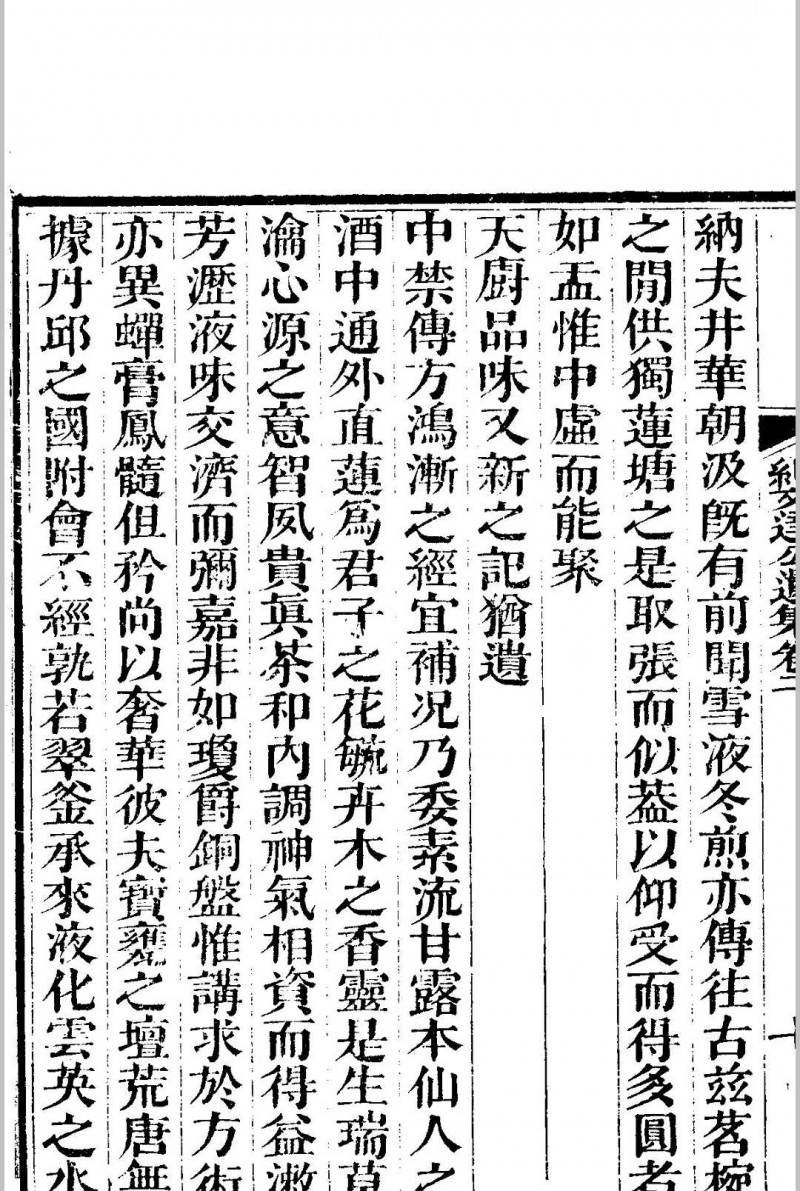 紀文達公遺集卷二
納夫井華朝汲旣有前聞雪液冬煎亦傳往古茲茗椀
之閒供獨蓮塘之是取張而似葢以仰受而得多圓者
如盂惟中虛而能聚
天廚品味又新之記猶遺
中禁傳方鴻漸之經宜補况乃委素流甘露本仙人之
酒中通外直蓮爲君子之花毓卉木之香靈是生瑞草
瀹心源之意智夙貴眞茶和內調神氣相資而得益漱
芳瀝液味交濟而彌嘉非如瓊爵銅盤惟講求於方術
亦異蟬膏鳳髓但矜尚以奢華彼夫寶甕之壇荒唐無
據丹邱之國附會不經孰若翠釜承來液化雲英之水